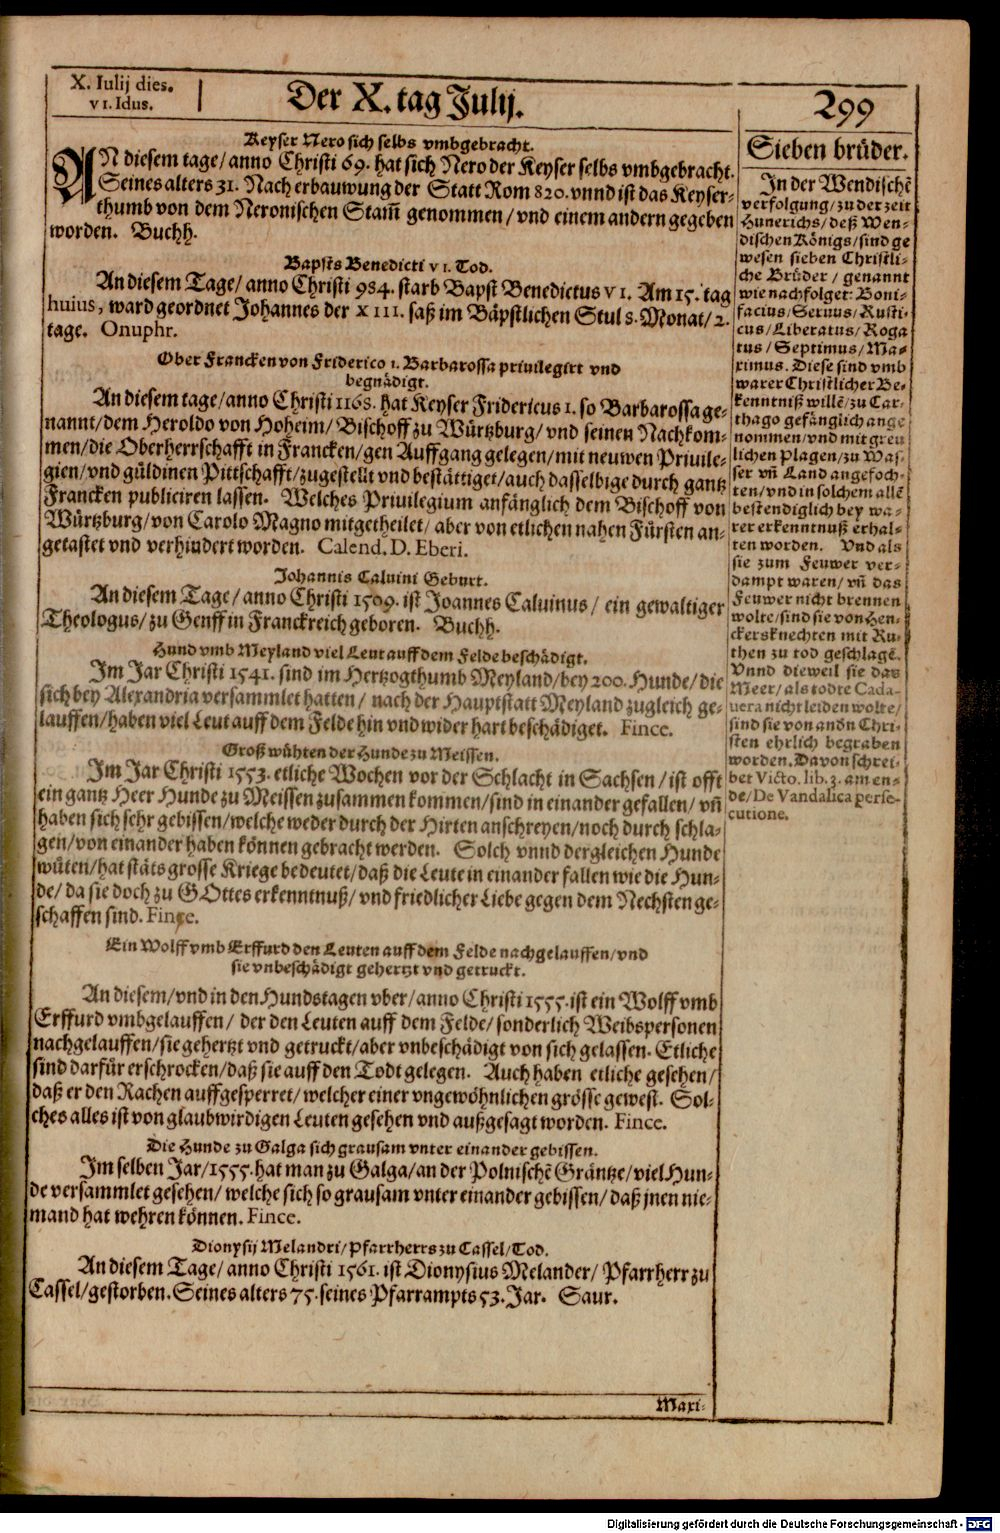 X. Iulij dies.
VI. Idus.
Der X. tag Julij.
299
Keyser Nero sich selbs vmbgebracht.
AN diesem tage/ anno Christi 69. hat sich Nero der Keyser selbs vmbgebracht.
Seines alters 31. Nach erbauwung der Statt Rom 820. vnnd ist das Keyser-
thumb von dem Neronischen Stam̃ genommen/ vnd einem andern gegeben
worden. Buchh.
Bapsts Benedicti VI. Tod.
An diesem Tage/ anno Christi 984. starb Bapst Benedictus VI. Am 15. tag
huius, ward geordnet Johannes der XIII. saß im Bäpstlichen Stul 8. Monat/ 2.
tage. Onuphr.
Ober Francken von Friderico 1. Barbarossa priuilegirt vnd
begnädigt.
An diesem tage/ anno Christi 1168. hat Keyser Fridericus 1. so Barbarossa ge-
nannt/ dem Heroldo von Hoheim/ Bischoff zu Würtzburg/ vnd seinen Nachkom-
men/ die Oberherrschafft in Francken/ gen Auffgang gelegen/ mit neuwen Priuile-
gien/ vnd güldinen Pittschafft/ zugestellt vnd bestättiget/ auch dasselbige durch gantz
Francken publiciren lassen. Welches Priuilegium anfänglich dem Bischoff von
Würtzburg/ von Carolo Magno mitgetheilet/ aber von etlichen nahen Fürsten an-
getastet vnd verhindert worden. Calend. D. Eberi.
Johannis Caluini Geburt.
An diesem Tage/ anno Christi 1509. ist Joannes Caluinus/ ein gewaltiger
Theologus/ zu Genff in Franckreich geboren. Buchh.
Hund vmb Meyland viel Leut auff dem Felde beschädigt.
Im Jar Christi 1541. sind im Hertzogthumb Meyland/ bey 200. Hunde/ die
sich bey Alexandria versammlet hatten/ nach der Hauptstatt Meyland zugleich ge-
lauffen/ haben viel Leut auff dem Felde hin vnd wider hart beschädiget. Fince.
Groß wühten der Hunde zu Meissen.
Im Jar Christi 1553. etliche Wochen vor der Schlacht in Sachsen/ ist offt
ein gantz Heer Hunde zu Meissen zusammen kommen/ sind in einander gefallen/ vñ
haben sich sehr gebissen/ welche weder durch der Hirten anschreyen/ noch durch schla-
gen/ von einander haben können gebracht werden. Solch vnnd dergleichen Hunde
wüten/ hat stäts grosse Kriege bedeutet/ daß die Leute in einander fallen wie die Hun-
de/ da sie doch zu GOttes erkenntnuß/ vnd friedlicher Liebe gegen dem Nechsten ge-
schaffen sind. Fince.
Ein Wolff vmb Erffurd den Leuten auff dem Felde nachgelauffen/ vnd
sie vnbeschädigt gehertzt vnd getruckt.
An diesem/ vnd in den Hundstagen vber/ anno Christi 1555. ist ein Wolff vmb
Erffurd vmbgelauffen/ der den Leuten auff dem Felde/ sonderlich Weibspersonen
nachgelauffen/ sie gehertzt vnd getruckt/ aber vnbeschädigt von sich gelassen. Etliche
sind darfür erschrocken/ daß sie auff den Todt gelegen. Auch haben etliche gesehen/
daß er den Rachen auffgesperret/ welcher einer vngewöhnlichen grösse gewest. Sol-
ches alles ist von glaubwirdigen Leuten gesehen vnd außgesagt worden. Fince.
Die Hunde zu Galga sich grausam vnter einander gebissen.
Im selben Jar/ 1555. hat man zu Galga/ an der Polnischẽ Gräntze/ viel Hun-
de versammlet gesehen/ welche sich so grausam vnter einander gebissen/ daß jnen nie-
mand hat wehren können. Fince.
Dionysij Melandri/ Pfarrherrs zu Cassel/ Tod.
An diesem Tage/ anno Christi 1561. ist Dionysius Melander/ Pfarrherr zu
Cassel/ gestorben. Seines alters 75. seines Pfarrampts 53. Jar. Saur.
Sieben brüder.
In der Wendischẽ
verfolgung/ zu der zeit
Hunerichs/ deß Wen-
dischen Königs/ sind ge
wesen sieben Christli-
che Brüder/ genannt
wie nachfolget: Boni-
facius/ Seruus/ Rusti-
cus/ Liberatus/ Roga
tus/ Septimus/ Ma-
ximus. Diese sind vmb
warer Christlicher Be-
kenntniß willẽ/ zu Car-
thago gefänglich ange
nommen/ vnd mit greu
lichen plagen/ zu Was-
ser vñ Land angefoch-
ten/ vnd in solchem allẽ
bestendiglich bey wa-
rer erkenntnuß erhal-
ten worden. Vnd als
sie zum Feuwer ver-
dampt waren/ vñ das
Feuwer nicht brennen
wolte/ sind sie von Hen-
ckersknechten mit Ru-
then zu tod geschlagẽ.
Vnnd dieweil sie das
Meer/ als todte Cada-
uera nicht leiden wolte/
sind sie von andn̄ Chri-
sten ehrlich begraben
worden. Davon schrei-
bet Victo. lib. 3. am en-
de/ De Vandalica perse-
cutione.
Maxi-
Digitalisierung gefördert durch die Deutsche Forschungsgemeinschaft - DFG